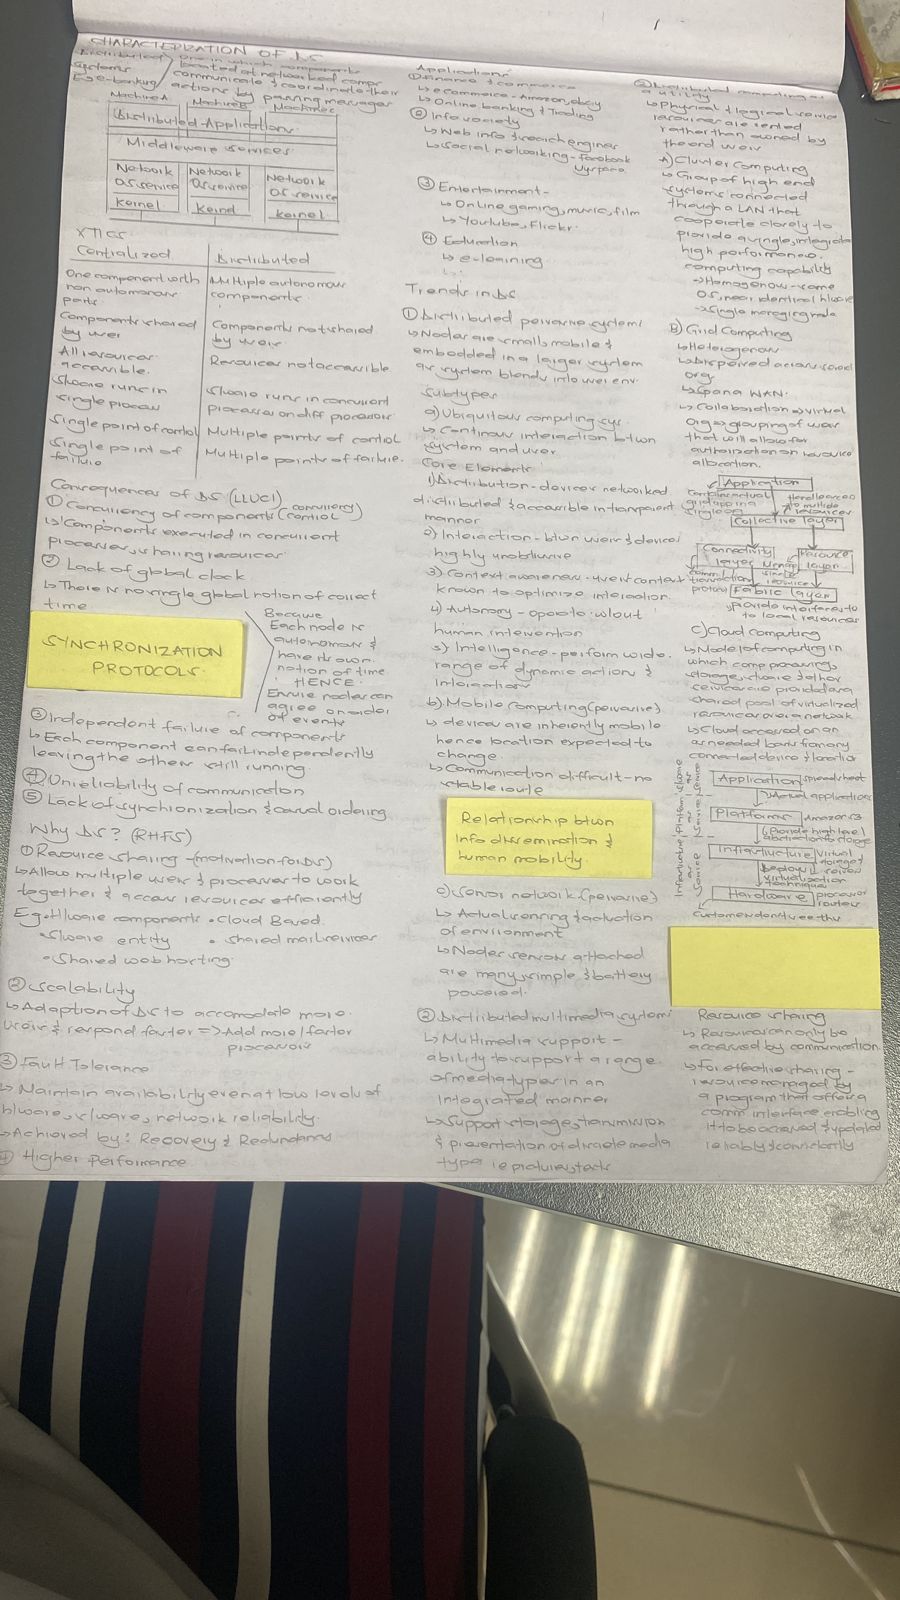 CHARACTERIZATION OF DS
Distributed systems
one in which components
located at networked comps
communicate & coordinate their
actions by passing messages
Eg e-banking
Machine A
Machine B
Machine C
Distributed Applications
Middleware services
Network
OS service
Kernel
Network
OS service
Kernel
Network
OS service
Kernel
XTICS
Centralized
Distributed
One component with
non autonomous
parts
Multiple autonomous
components
Components shared
by user
Components not shared
by users
All resources
accessible.
Resources not accessible
S/ware runs in
single process
S/ware runs in concurrent
processes on diff processors
Single point of control
Multiple points of control
Single point of
failure
Multiple points of failure.
Consequences of DS (LLUCI)
① Concurrency of components (concurrency control)
↳ Components executed in concurrent
processes, sharing resources
② Lack of global clock
↳ There is no single global notion of correct
time
Because
Each node is
autonomous &
have its own
notion of time
HENCE
Ensure nodes can
agree on order
of events
SYNCHRONIZATION
PROTOCOLS.
③ Independent failure of components
↳ Each component can fail independently
leaving the others still running.
④ Unreliability of communication
⑤ Lack of synchronization & causal ordering
Why DS? (RHFS)
① Resource sharing - (motivation for DS)
↳ Allow multiple users & processes to work
together & access resources efficiently
Eg • H/ware components • Cloud Based.
• S/ware entity • shared mail services
• Shared web hosting
② Scalability
↳ Adaption of DS to accomodate more
users & respond faster => Add more/faster
processors
③ Fault Tolerance
↳ Maintain availability even at low levels of
h/ware, s/ware, network reliability.
↳ Achieved by: Recovery & Redundancy
④ Higher Performance
Applications
① Finance & commerce
↳ ecommerce - Amazon, ebay
↳ Online banking & Trading
② Info society
↳ Web info & search engines
↳ Social networking - Facebook
③ Entertainment -
↳ Online gaming, music, film
↳ Youtube, Flickr.
④ Education
↳ e-learning
Trends in DS
① Distributed pervasive systems
↳ Nodes are small, mobile &
embedded in a larger system
as system blends into user env.
Subtypes
a) Ubiquitous computing sys
↳ Continous interaction btwn
system and user
Core Elements
1) Distribution - devices networked
distributed & accessible in transparent
manner
2) Interaction - btwn users & devices
highly unobtrusive
3) Context awareness - user context
known to optimize interaction
4) Autonomy - operate w/out
human intervention
5) Intelligence - perform wide
range of dynamic action &
interactions
b) Mobile computing (pervasive)
↳ devices are inherently mobile
hence location expected to
change.
↳ Communication difficult - no
stable route
Relationship btwn
info dissemination &
human mobility.
c) Sensor network (pervasive)
↳ Actual sensing & actuation
of environment
↳ Nodes sensors attached
are many, simple & battery
powered.
② Distributed multimedia systems
↳ Multimedia support -
ability to support a range
of media types in an
integrated manner
↳ Support storage, transmission
& presentation of discrete media
type ie pictures, texts
③ Distributed computing as
a utility
↳ Physical & logical service
resources are rented
rather than owned by
the end user
A) Cluster computing
↳ Group of high end
systems connected
through a LAN that
cooperate closely to
provide a single, integrated
high performance
computing capability
→ Homogenous - same
OS, near identical h/ware
→ Single managing node
B) Grid Computing
↳ Heterogenous
↳ Dispersed across several
org
↳ Spans WAN.
↳ Collaboration => virtual
Org => grouping of users
that will allow for
authorization on resource
allocation.
Application
Collective layer
Handle access
to multiple
resources
Connectivity
layer
Resource
layer
Fabric layer
provide interfaces to
to local resources
C) Cloud computing
↳ Model of computing in
which comp processing,
storage, s/ware & other
services are provided as a
shared pool of virtualized
resources over a network
↳ Cloud accessed on an
as needed basis from any
connected device & location
Application
spreadsheet
Actual applications
Platforms
Amazon S3
Provide high level
abstraction to storage
Infrastructure
virtual
storage &
servers
Deploy
virtualization
techniques
Hardware
processor
routers
Customers don't see this
Infrastructure as a Service
Platform as a Service
S/ware as a Service
Resource sharing
↳ Resources can only be
accessed by communication.
↳ For effective sharing -
resource managed by
a program that offers a
comm interface enabling
it to be accessed & updated
reliably & consistently